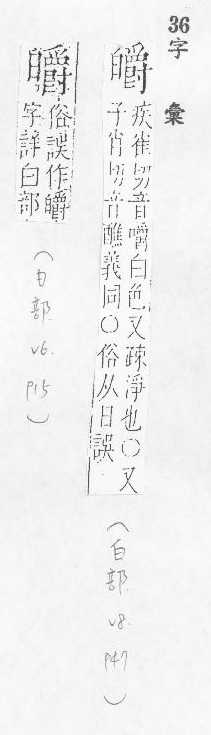 36字彙
皭疾雀切音嚼白色又疎淨也○又
子肖切音醮義同○俗从日誤
(白部. v8. p47)
㬭俗誤作皭
字詳白部
(日部. v6. p15)